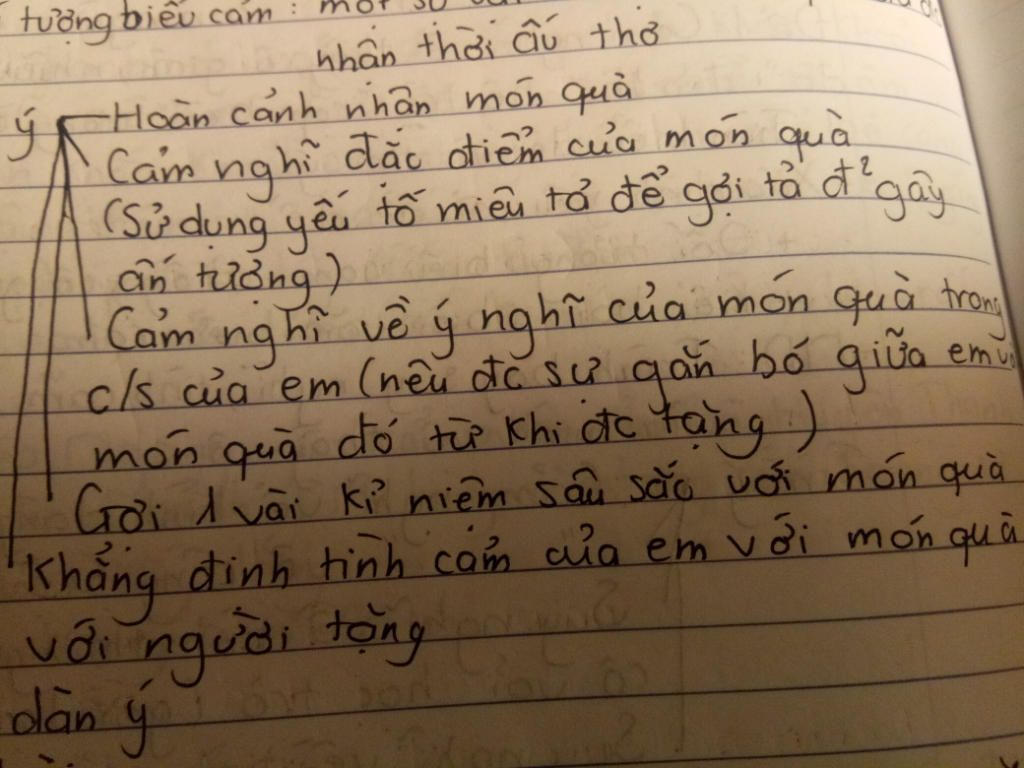 tượng biểu cảm : một số
nhận thời ấu thơ
ý Hoàn cảnh nhận món quà
Cảm nghĩ đặc điểm của món quà
(Sử dụng yếu tố miêu tả để gợi tả đ² gây
ấn tượng)
Cảm nghĩ về ý nghĩ của món quà trong
c/s của em (nêu đc sự gắn bó giữa em
món quà đó từ khi đc tặng)
Gợi 1 vài kỉ niệm sâu sắc với món quà
Khẳng định tình cảm của em với món quà
với người tặng
dàn ý